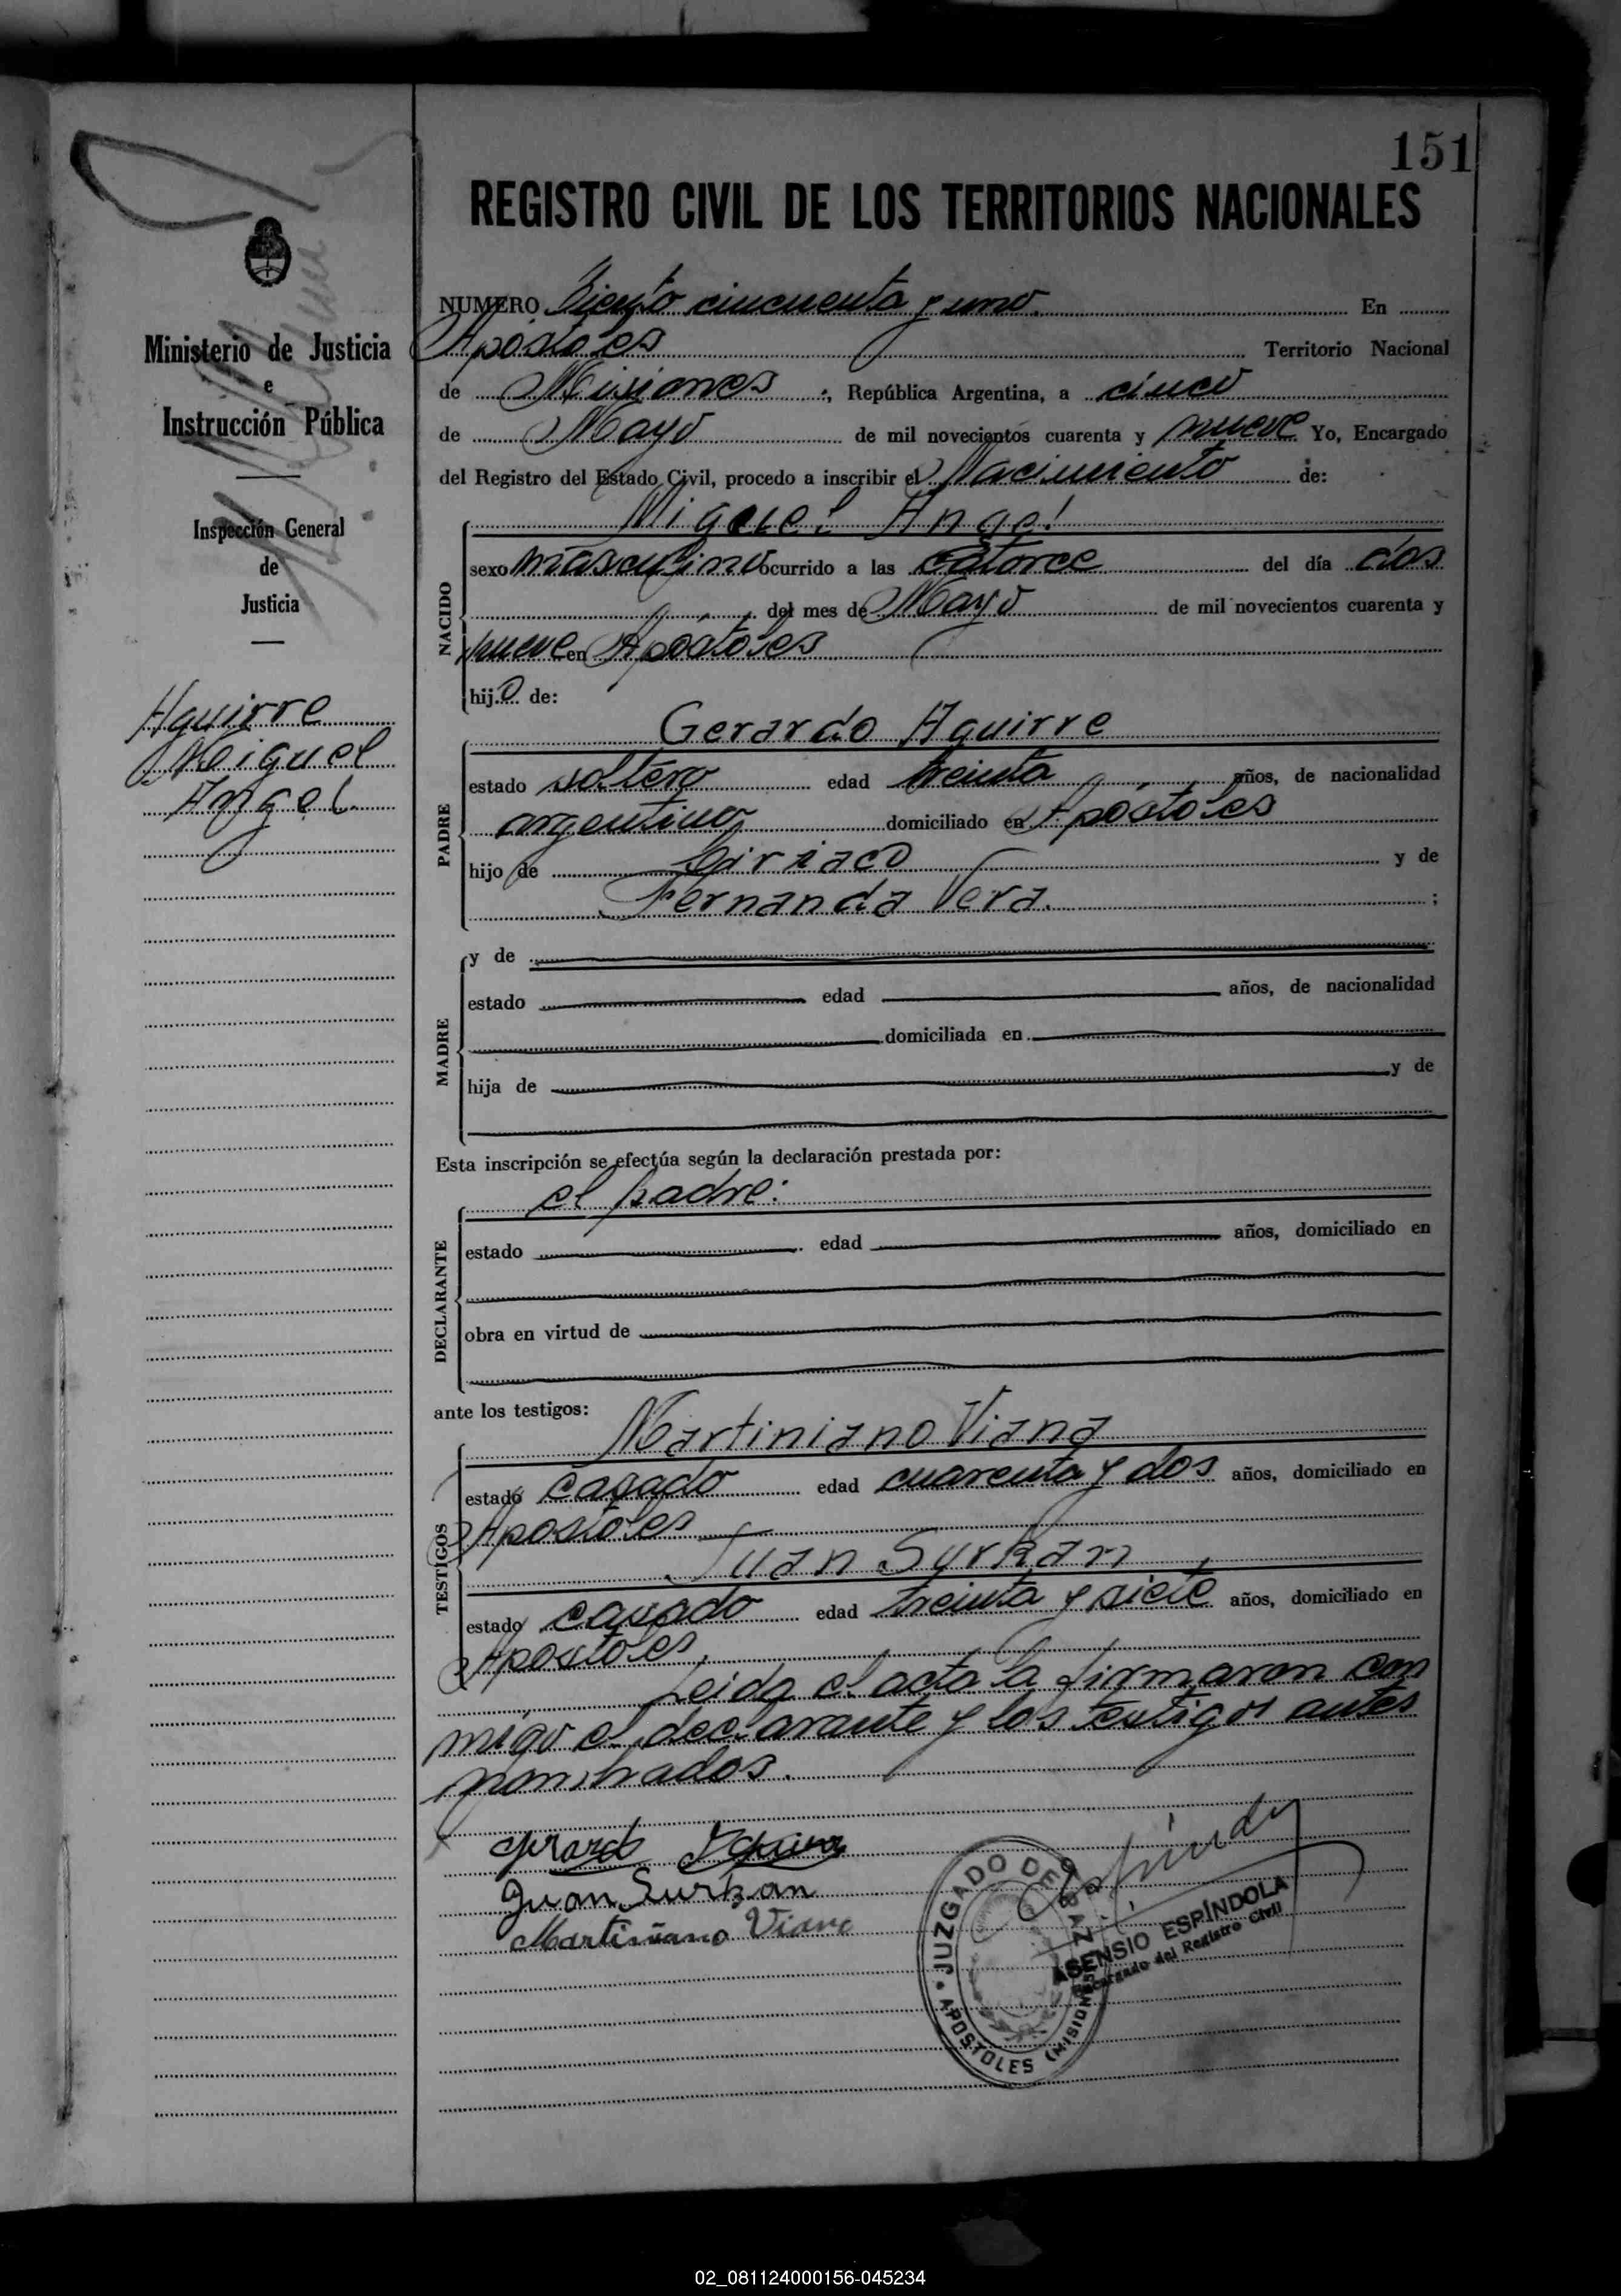 151
REGISTRO CIVIL DE LOS TERRITORIOS NACIONALES
Ministerio de Justicia
e
Instrucción Pública
Inspección General
de
Justicia
Aguirre
Miguel
Angel.
NUMERO Ciento cincuenta y uno. En
Apóstoles Territorio Nacional
de Misiones, República Argentina, a cinco
de Mayo de mil novecientos cuarenta y nueve Yo, Encargado
del Registro del Estado Civil, procedo a inscribir el Nacimiento de:
NACIDO
Miguel Angel
sexo masculino ocurrido a las catorce del día dos
del mes de Mayo de mil novecientos cuarenta y
nueve en Apóstoles
hijo de:
PADRE
Gerardo Aguirre
estado soltero edad treinta años, de nacionalidad
argentino, domiciliado en Apóstoles
hijo de Ciriaco y de
Fernanda Vera. ;
MADRE
y de
estado edad años, de nacionalidad
domiciliada en
hija de y de
Esta inscripción se efectúa según la declaración prestada por:
DECLARANTE
el padre:
estado edad años, domiciliado en
obra en virtud de
ante los testigos:
TESTIGOS
Martiniano Viana
estado casado edad cuarenta y dos años, domiciliado en
Apostoles
Juan Syrkan
estado casado edad treinta y siete años, domiciliado en
Apostoles,
Leida el acta la firmaron con
migo el declarante y los testigos antes
nombrados.
Gerardo Aguirre
Juan Surkan
Martiniano Viana
JUZGADO DE PAZ
APOSTOLES (MISIONES)
ASENSIO ESPÍNDOLA
Encargado del Registro Civil
02_081124000156-045234